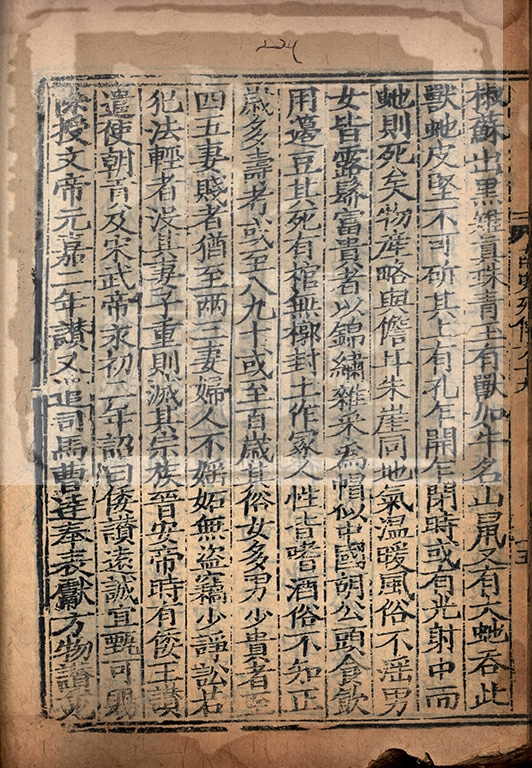 椒蘇出黑雉真珠青玉有獸如牛名山鼠又有大虵吞此
獸虵皮堅不可斫其上有孔乍開乍閉時或有光射中而
虵則死矣物產略與儋耳朱崖同地氣溫暖風俗不淫男
女皆露髻富貴者以錦繡雜采爲帽似中國胡公頭食飲
用籩豆其死有棺無槨封土作冢人性皆嗜酒俗不知正
歲多壽考或至八九十或至百歲其俗女多男少貴者至
四五妻賤者猶至兩三妻婦人不婬妬無盜竊少諍訟若
犯法輕者沒其妻子重則滅其宗族晉安帝時有倭王讃
遣使朝貢及宋武帝永初二年詔曰倭讃遠誠宜甄可賜
除授文帝元嘉二年讃又遣司馬曹達奉表獻方物讃死